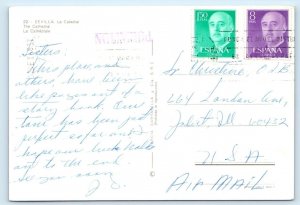 22 - SEVILLA. La Catedral
The Cathedral
La Cathédrale
Sisters:
This place, and
others, have been
like pages out of a
story book. Our
time has been just
perfect so far and
hope our luck holds
up to the end.
See you soon
1,50
ESPAÑA
8
ESPAÑA
Sr. Theodore, O.S.B.
Joliet Ill 60432
USA
AIR MAIL